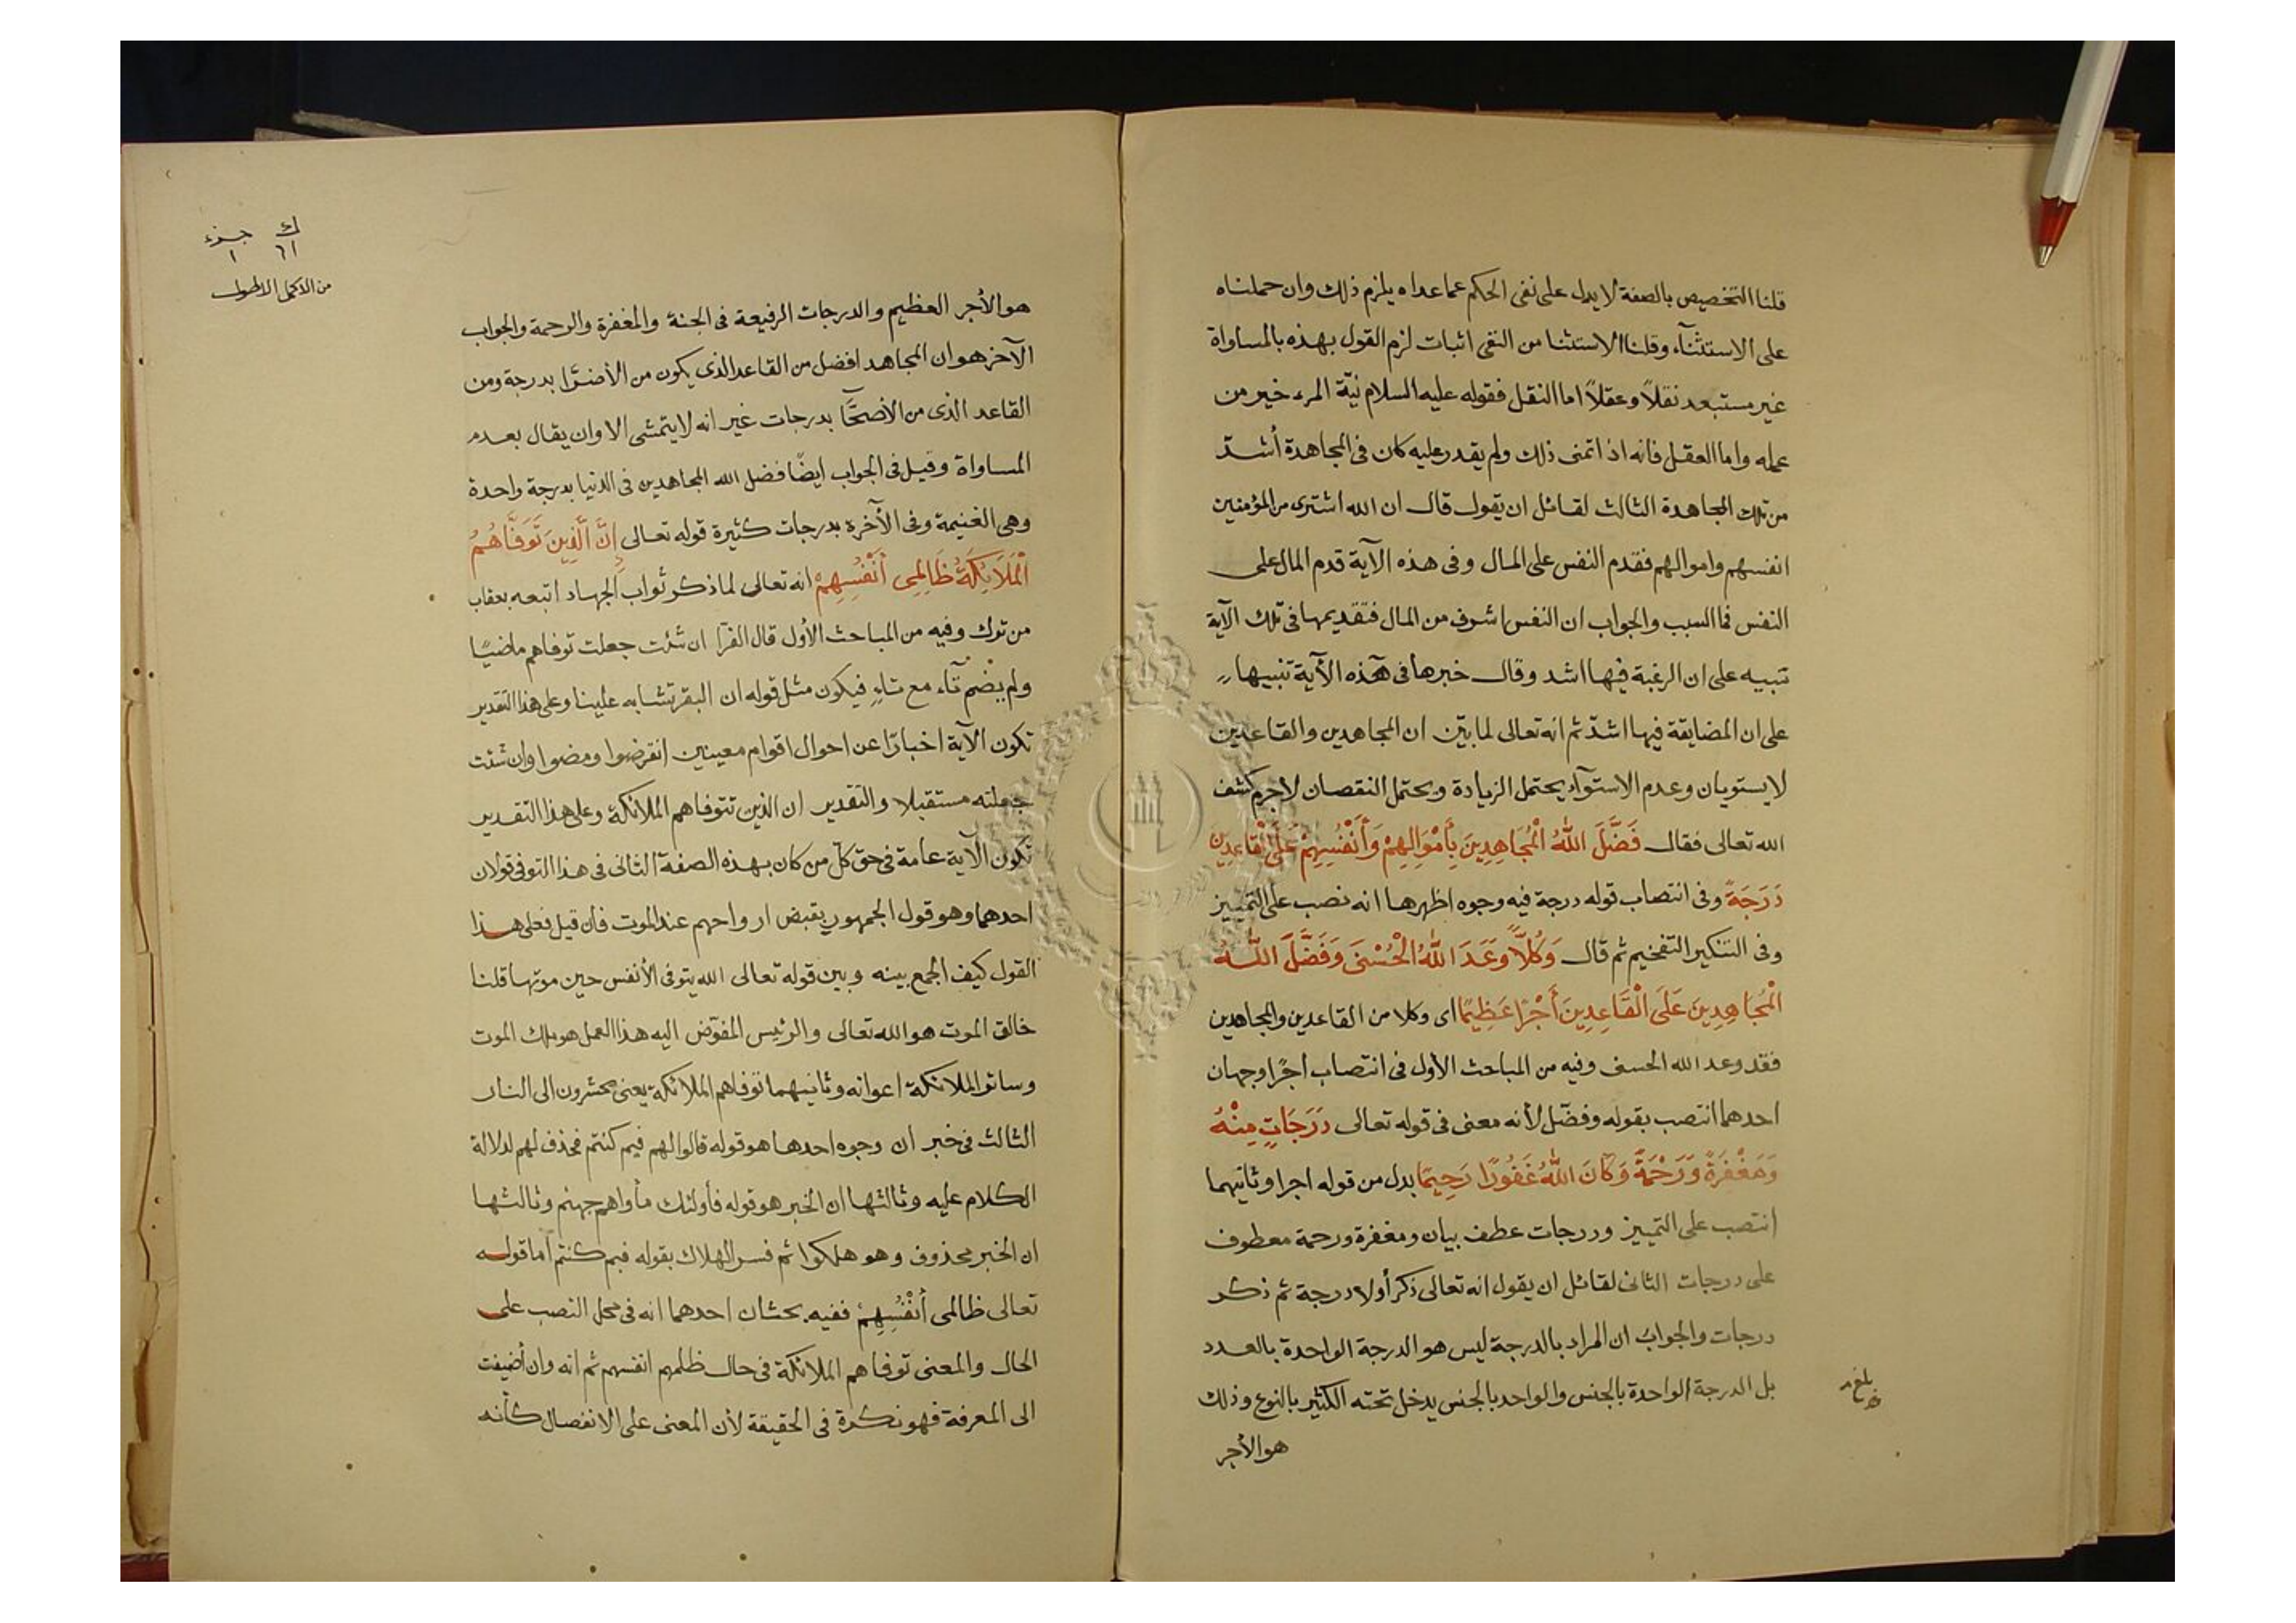 قلنا التخصيص بالصفة لا يدل على نفى الحكم عما عداه يلزم ذلك وان حملناه
على الاستثنآء وقلنا الاستثنا من النفى اثبات لزم القول بهذه بالمساواة
غير مستبعد نقلاً وعقلاً اما النقل فقوله عليه السلام نيّة المرء خير من
عمله واما العقل فانه اذا تمنى ذلك ولم يقدر عليه كان فى المجاهدة أشدّ
من تلك المجاهدة الثالث لقائل ان يقول قال ان الله اشترى من المؤمنين
انفسهم واموالهم فقدم النفس على المال وفى هذه الآية قدم المال على
النفس فما السبب والجواب ان النفس اشرف من المال فتقديمها فى تلك الآية
تنبيه على ان الرغبة فيها اشد وقال خبرها فى هذه الآية تنبيها
على ان المضايقة فيها اشدّ ثم انه تعالى لما بيّن ان المجاهدين والقاعدين
لا يستويان وعدم الاستوآء يحتمل الزيادة ويحتمل النقصان لاجرم كشف
الله تعالى فقال فَضَّلَ اللهُ الْمُجَاهِدِينَ بِأَمْوَالِهِمْ وَأَنْفُسِهِمْ عَلَى الْقَاعِدِينَ
دَرَجَةً وفى انتصاب قوله درجة فيه وجوه اظهرها انه نصب على التمييز
وفى التنكير التفخيم ثم قال وَكُلاًّ وَعَدَ اللهُ الْحُسْنَى وَفَضَّلَ اللهُ
الْمُجَاهِدِينَ عَلَى الْقَاعِدِينَ أَجْرًا عَظِيمًا اى وكلا من القاعدين والمجاهدين
فقد وعد الله الحسنى وفيه من المباحث الأول فى انتصاب أجرًا وجهان
احدهما انتصب بقوله وفضّل لأنه معنى فى قوله تعالى دَرَجَاتٍ مِنْهُ
وَمَغْفِرَةً وَرَحْمَةً وَكَانَ اللهُ غَفُورًا رَحِيمًا بدل من قوله اجرا وثانيهما
انتصب على التمييز ودرجات عطف بيان ومغفرة ورحمة معطوف
على درجات الثانى لقائل ان يقول انه تعالى ذكر أولا درجة ثم ذكر
درجات والجواب ان المراد بالدرجة ليس هو الدرجة الواحدة بالعدد
بل الدرجة الواحدة بالجنس والواحد بالجنس يدخل تحته الكثير بالنوع وذلك
هو الأجر
بلغ
ك جزء
٦١ ١
من الاكمل الاطول
هو الأجر العظيم والدرجات الرفيعة فى الجنة والمغفرة والرحمة والجواب
الآخر هو ان المجاهد افضل من القاعد الذى يكون من الأضرّا بدرجة ومن
القاعد الذى من الأصحّا بدرجات غير انه لا يتمشى الا وان يقال بعدم
المساواة وقيل فى الجواب ايضًا فضل الله المجاهدين فى الدنيا بدرجة واحدة
وهى الغنيمة وفى الآخرة بدرجات كثيرة قوله تعالى إِنَّ الَّذِينَ تَوَفَّاهُمُ
الْمَلَائِكَةُ ظَالِمِى أَنْفُسِهِمْ انه تعالى لما ذكر ثواب الجهاد اتبعه بعقاب
من ترك وفيه من المباحث الأول قال الفرّا ان شئت جعلت توفاهم ماضيًا
ولم يضم تآء مع تاءٍ فيكون مثل قوله ان البقر تشابه علينا وعلى هذا التقدير
تكون الآية اخبارًا عن احوال اقوام معينين انقرضوا ومضوا وان شئت
جعلته مستقبلا والتقدير ان الذين تتوفاهم الملائكة وعلى هذا التقدير
تكون الآية عامة فى حق كلّ من كان بهذه الصفة الثانى فى هذا التوفى قولان
احدهما وهو قول الجمهور يقبض ارواحهم عند الموت فان قيل فعلى هذا
القول كيف الجمع بينه وبين قوله تعالى الله يتوفى الأنفس حين موتها قلنا
خالق الموت هو الله تعالى والرئيس المفوّض اليه هذا العمل هو ملك الموت
وسائر الملائكة اعوانه وثانيهما توفاهم الملائكة يعنى يحشرون الى النار
الثالث فى خبر ان وجوه احدها هو قوله قالوا لهم فيم كنتم فحذف لهم لدلالة
الكلام عليه وثالثها ان الخبر هو قوله فأولئك مأواهم جهنم وثالثها
ان الخبر محذوف وهو هلكوا ثم فسر الهلاك بقوله فيم كنتم أما قوله
تعالى ظالمى أَنْفُسِهِمْ ففيه بحثان احدهما انه فى محل النصب على
الحال والمعنى توفاهم الملائكة فى حال ظلمهم انفسهم ثم انه وان أضيفت
الى المعرفة فهو نكرة فى الحقيقة لأن المعنى على الانفصال كأنه